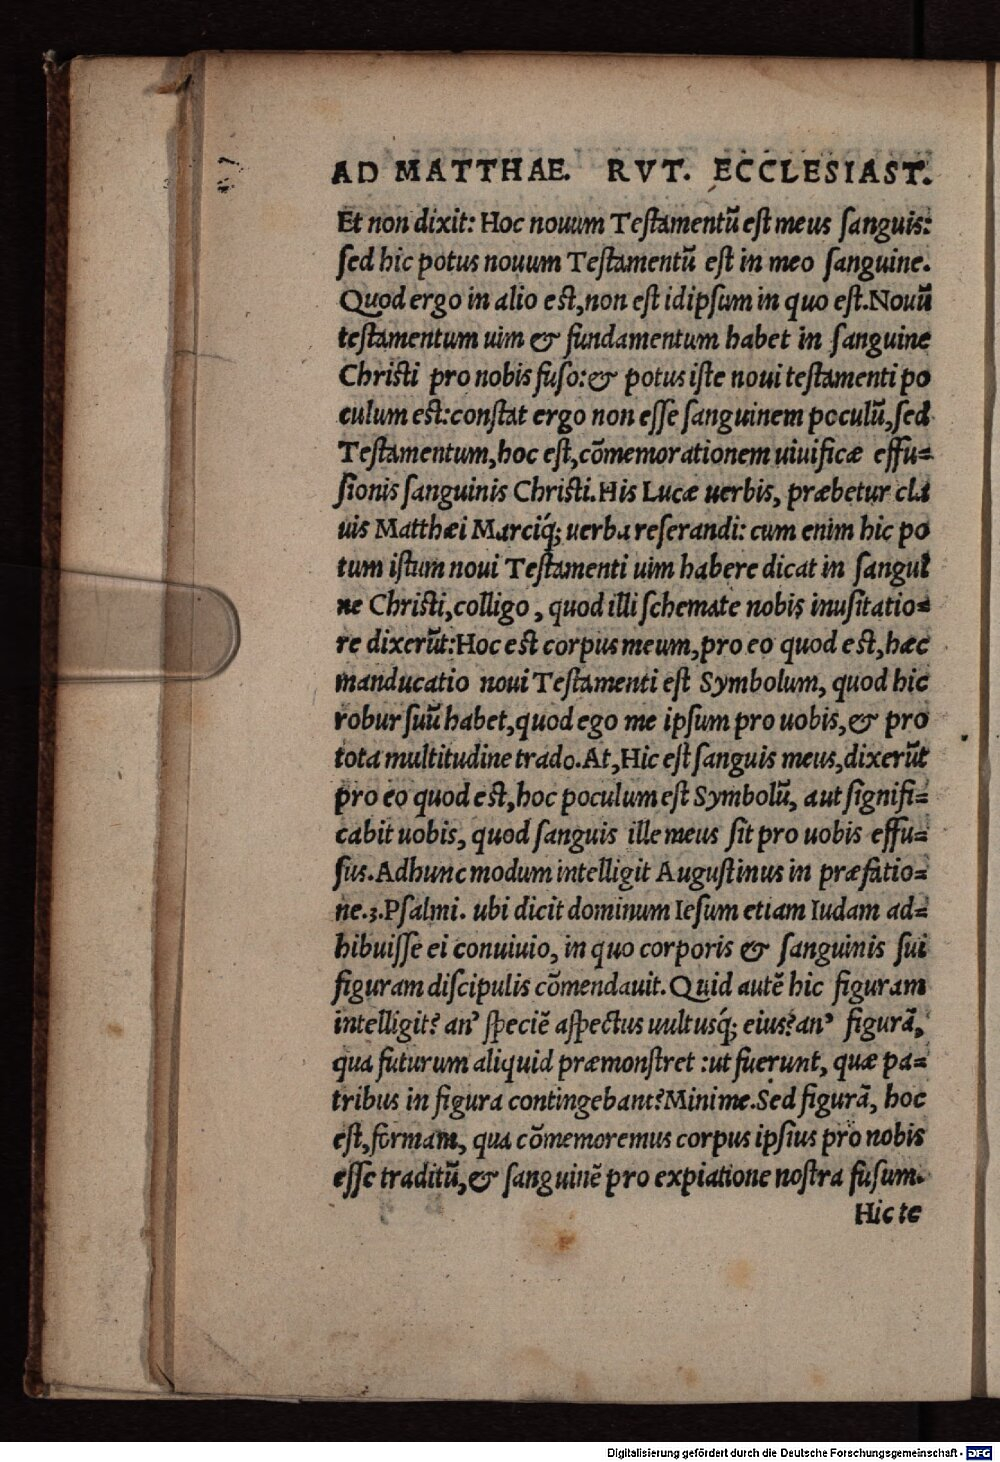 AD MATTHAE. RVT. ECCLESIAST.
Et non dixit: Hoc nouum Testamentũ est meus sanguis:
sed hic potus nouum Testamentũ est in meo sanguine.
Quod ergo in alio est, non est idipsum in quo est. Nouũ
testamentum uim & fundamentum habet in sanguine
Christi pro nobis fuso: & potus iste noui testamenti po
culum est: constat ergo non esse sanguinem poculũ, sed
Testamentum, hoc est, cõmemorationem uiuificæ effu=
sionis sanguinis Christi. His Lucæ uerbis, præbetur cla
uis Matthæi Marciq́; uerba reserandi: cum enim hic po
tum istum noui Testamenti uim habere dicat in sangui
ne Christi, colligo, quod illi schemate nobis inusitatio=
re dixerũt: Hoc est corpus meum, pro eo quod est, hæc
manducatio noui Testamenti est Symbolum, quod hic
robur suũ habet, quod ego me ipsum pro uobis, & pro
tota multitudine trado. At, Hic est sanguis meus, dixerũt
pro eo quod est, hoc poculum est Symbolũ, aut signifi=
cabit uobis, quod sanguis ille meus sit pro uobis effu=
sus. Ad hunc modum intelligit Augustinus in præfatio=
ne .3. Psalmi. ubi dicit dominum Iesum etiam Iudam ad=
hibuisse ei conuiuio, in quo corporis & sanguinis sui
figuram discipulis cõmendauit. Quid autẽ hic figuram
intelligit? an' speciẽ aspectus uultusq́; eius? an' figurã,
qua futurum aliquid præmonstret: ut fuerunt, quæ pa=
tribus in figura contingebant? Minime. Sed figurã, hoc
est, formam, qua cõmemoremus corpus ipsius pro nobis
esse traditũ, & sanguinẽ pro expiatione nostra fusum.
Hic te
Digitalisierung gefördert durch die Deutsche Forschungsgemeinschaft - DFG